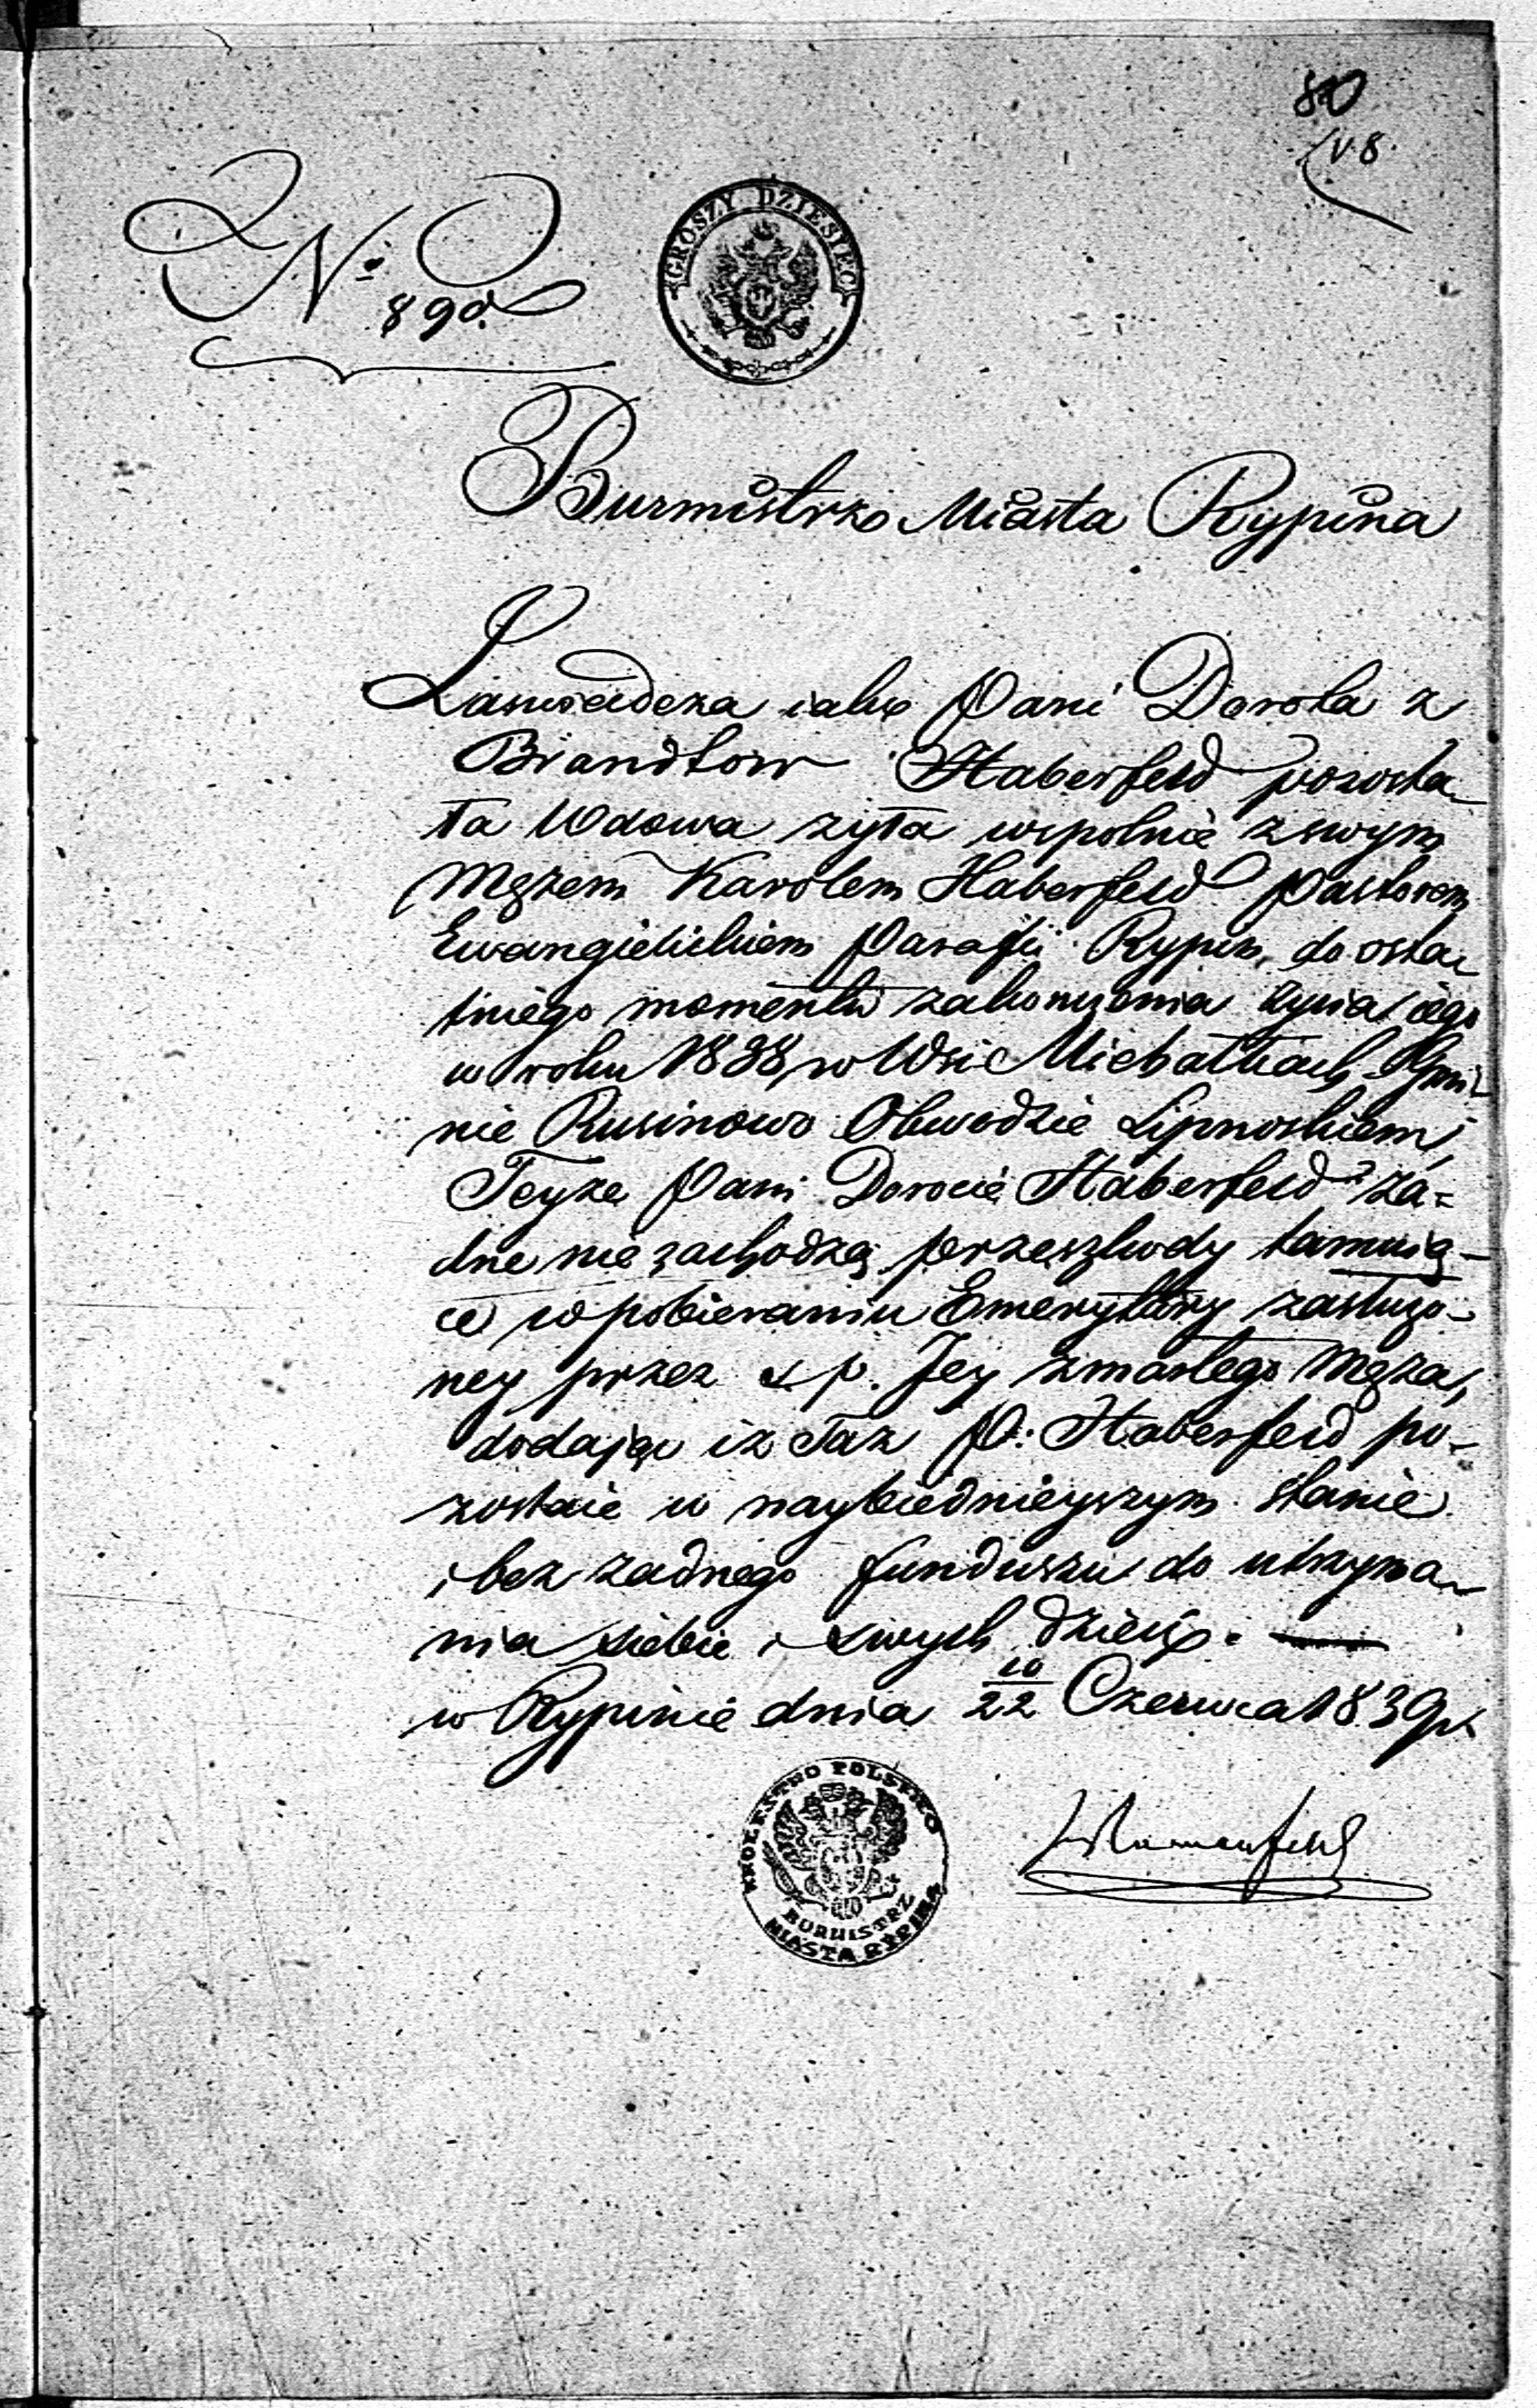 80
V. 8.
GROSZY DZIESIĘC
No 890.
Burmistrz Miasta Rypina
Zaswiadcza iako Pani Dorota z
Brandtow Haberfeld pozosta-
ła Wdowa zyła wspolnie z swym
Męzem Karolem Haberfeld Pastorem
Ewangielickiem Parafii Rypin, do osta-
tniego momentu zakonczenia zycia iego
w roku 1838, w Wsi Michałkach Gmi-
nie Rusinowo Obwodzie Lipnoskiem,
Teyze Pani Dorocie Haberfeld za-
dne nie zachodzą przeszkody tamuią-
ce w pobieraniu Emerytury zasłuzo-
ney przez s. p. Jey zmarłego Męza,
dodając iz Taz P: Haberfeld po-
zostaie w naybiednieyszym stanie
i bez zadnego funduszu do utrzyma-
nia siebie i swych dzieci. —
w Rypinie dnia 10/22 Czerwca 1839 r
KROLESTWO POLSKIE
BURMISTRZ
MIASTA RYPINA